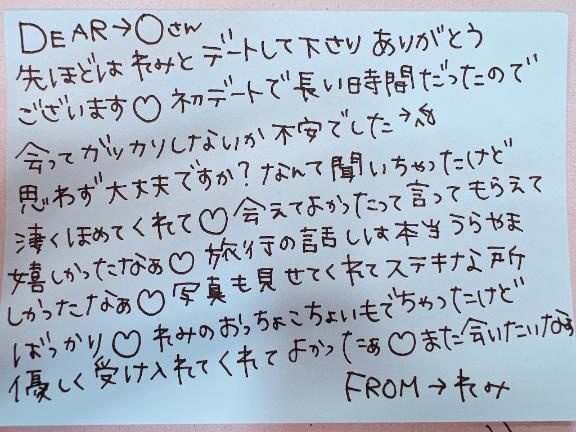 DEAR→〇さん
先ほどは れみと デートして下さり ありがとう
ございます♡ 初デートで 長い時間だったので
会って ガッカリしないか 不安でした
思わず 大丈夫ですか? なんて 聞いちゃったけど
凄く ほめてくれて♡ 会えてよかったって 言ってもらえて
嬉しかったなぁ♡ 旅行の話しは 本当 うらやま
しかったなぁ♡ 写真も見せてくれて ステキな所
ばっかり♡ れみの おっちょこちょいもでちゃったけど
優しく 受け入れてくれて よかったぁ♡ また会いたいなぁ
FROM→れみ